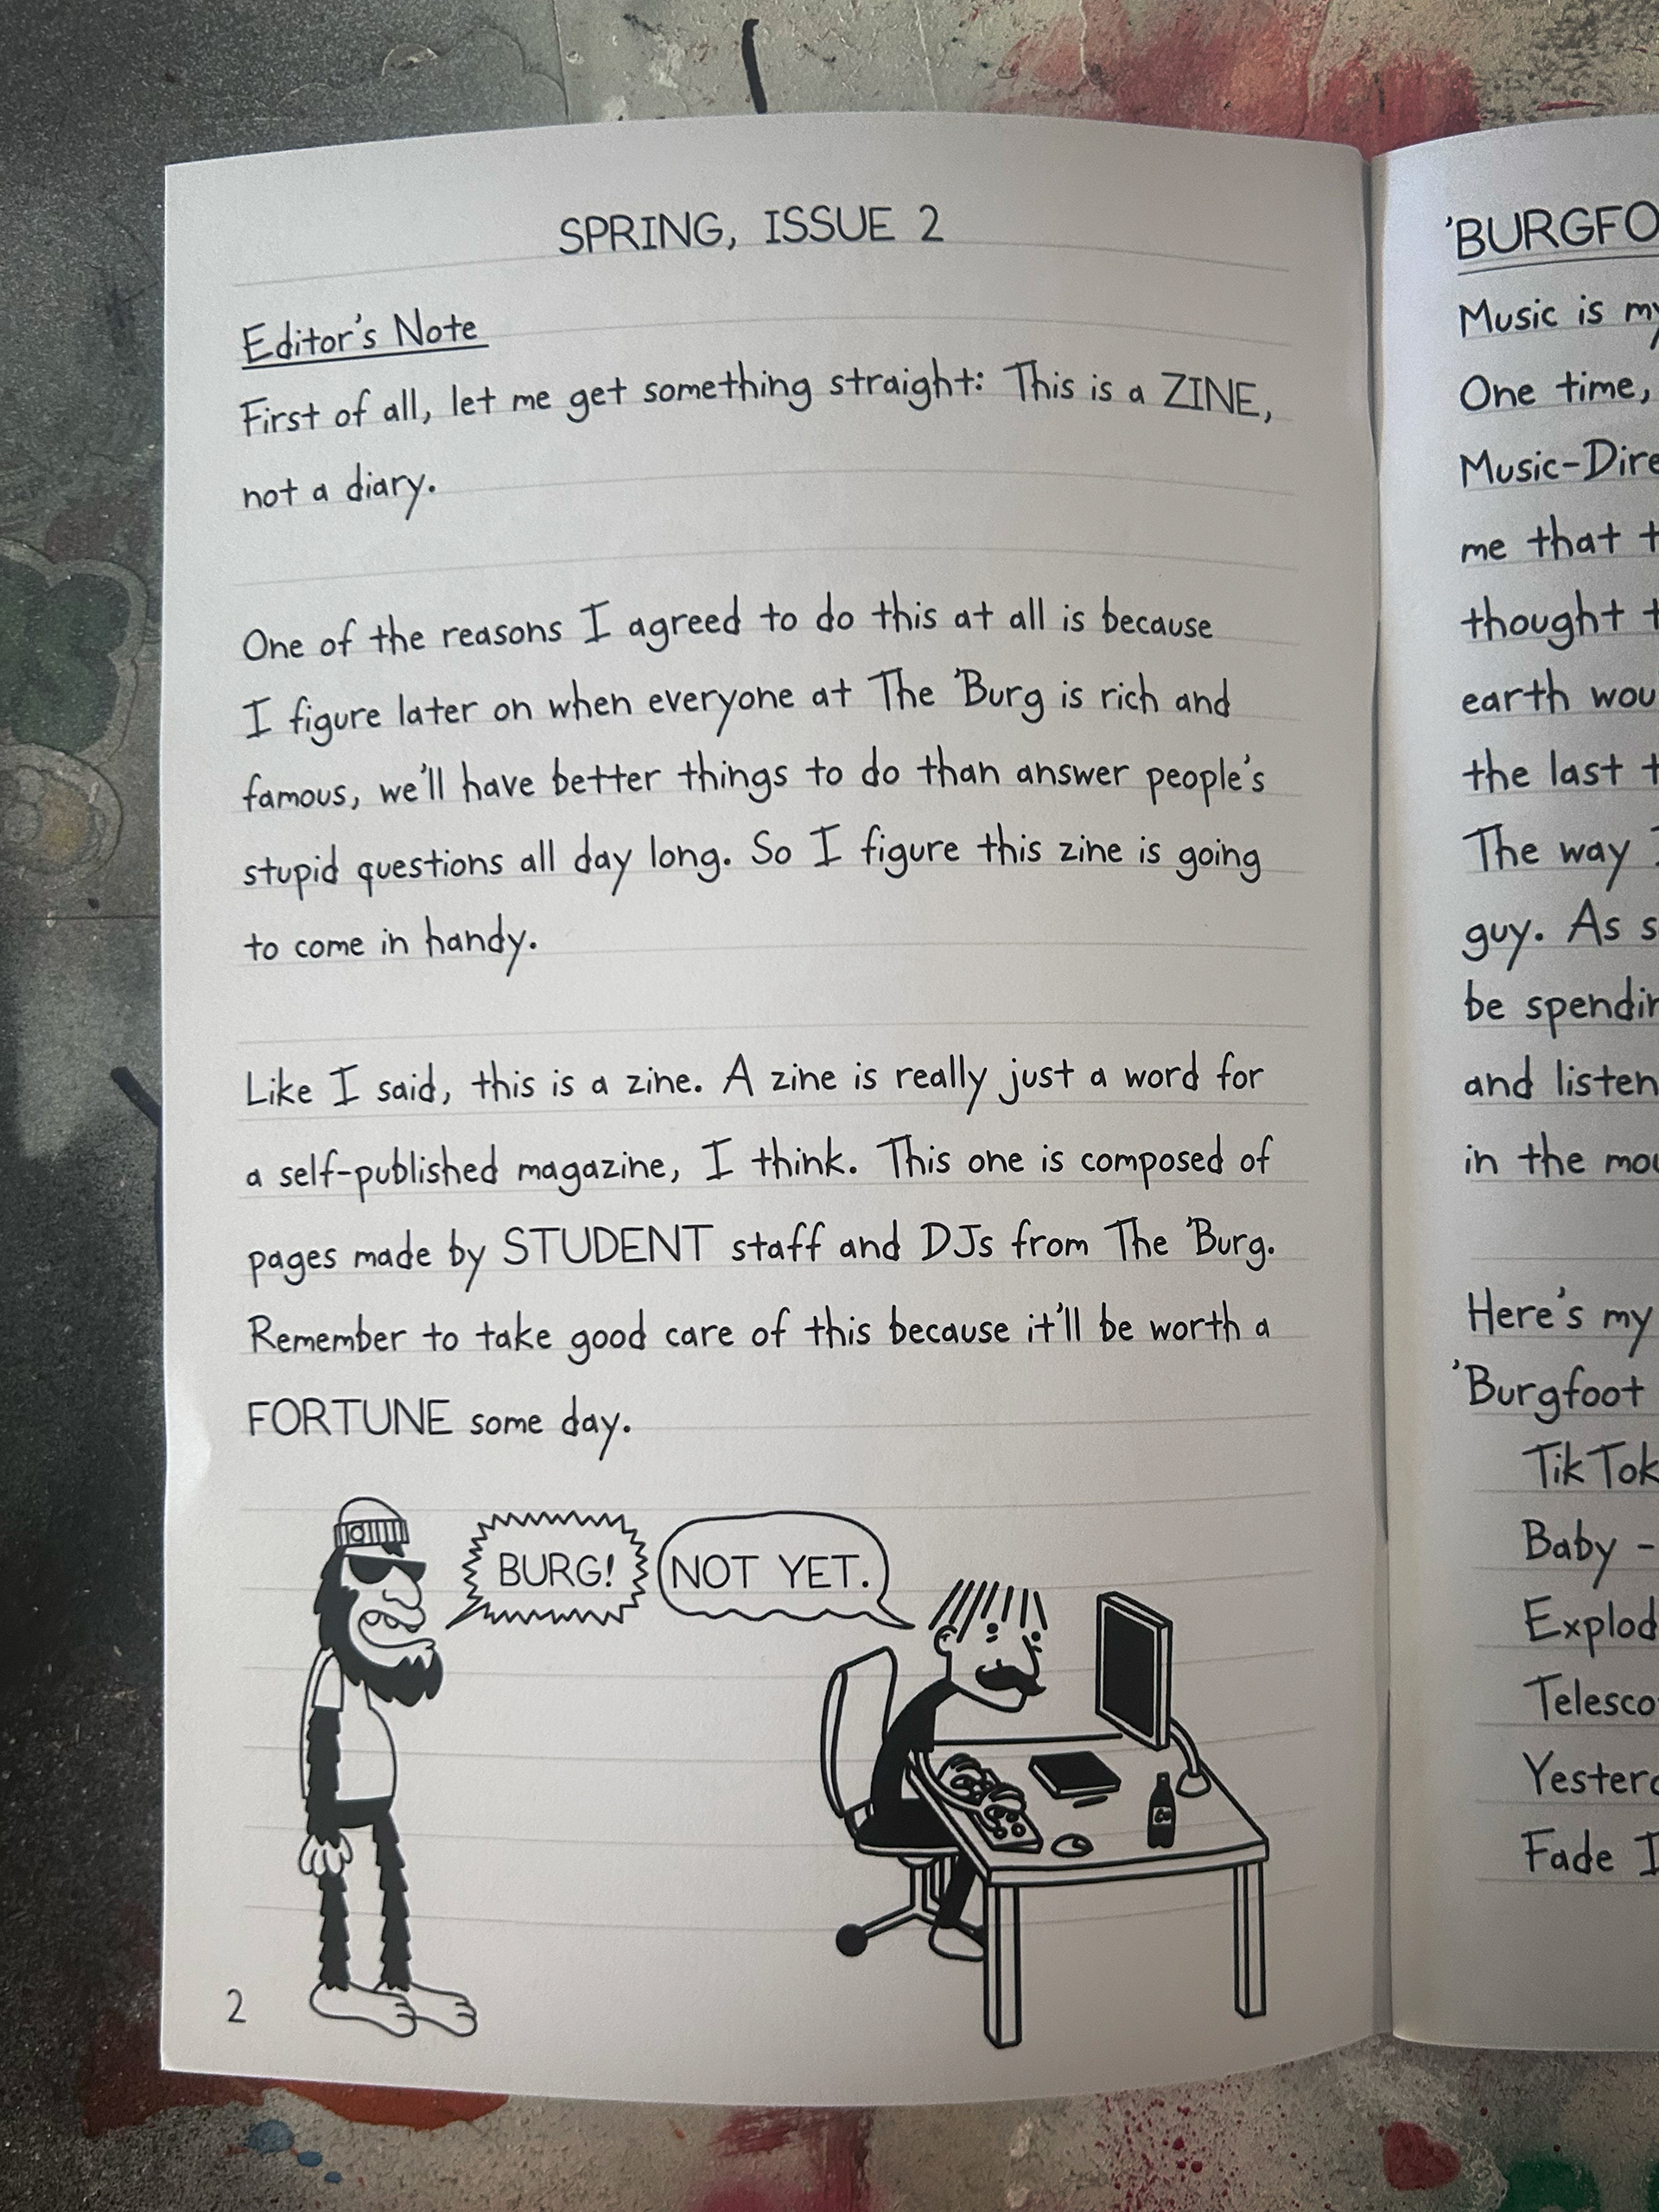 SPRING, ISSUE 2
Editor's Note
First of all, let me get something straight: This is a ZINE,
not a diary.
One of the reasons I agreed to do this at all is because
I figure later on when everyone at The 'Burg is rich and
famous, we'll have better things to do than answer people's
stupid questions all day long. So I figure this zine is going
to come in handy.
Like I said, this is a zine. A zine is really just a word for
a self-published magazine, I think. This one is composed of
pages made by STUDENT staff and DJs from The 'Burg.
Remember to take good care of this because it'll be worth a
FORTUNE some day.
BURG!
NOT YET.
2
Music is
One time,
me that
thought
earth
the last
The way
guy. As
be
and
in the
Here's my
'Burgfoot
Baby -
Fade